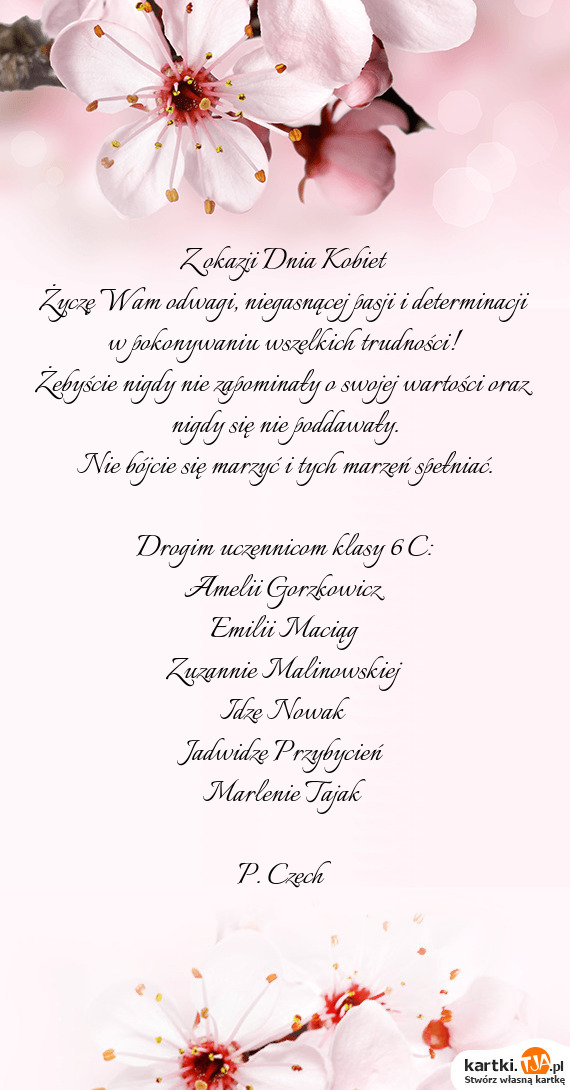 Z okazji Dnia Kobiet
Życzę Wam odwagi, niegasnącej pasji i determinacji
w pokonywaniu wszelkich trudności!
Żebyście nigdy nie zapominały o swojej wartości oraz
nigdy się nie poddawały.
Nie bójcie się marzyć i tych marzeń spełniać.
Drogim uczennicom klasy 6 C:
Amelii Gorzkowicz
Emilii Maciąg
Zuzannie Malinowskiej
Idze Nowak
Jadwidze Przybycień
Marlenie Tajak
P. Czech
kartki.TJA.pl
Stwórz własną kartkę